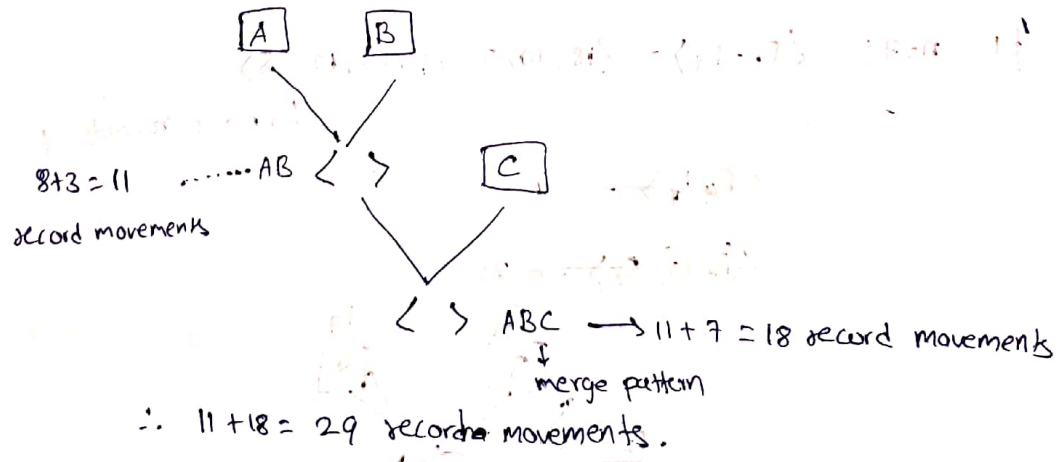 A B
8+3=11 ....... AB < >
C
record movements
< > ABC → 11+7 = 18 record movements
↓
merge pattern
∴ 11+18 = 29 record movements.